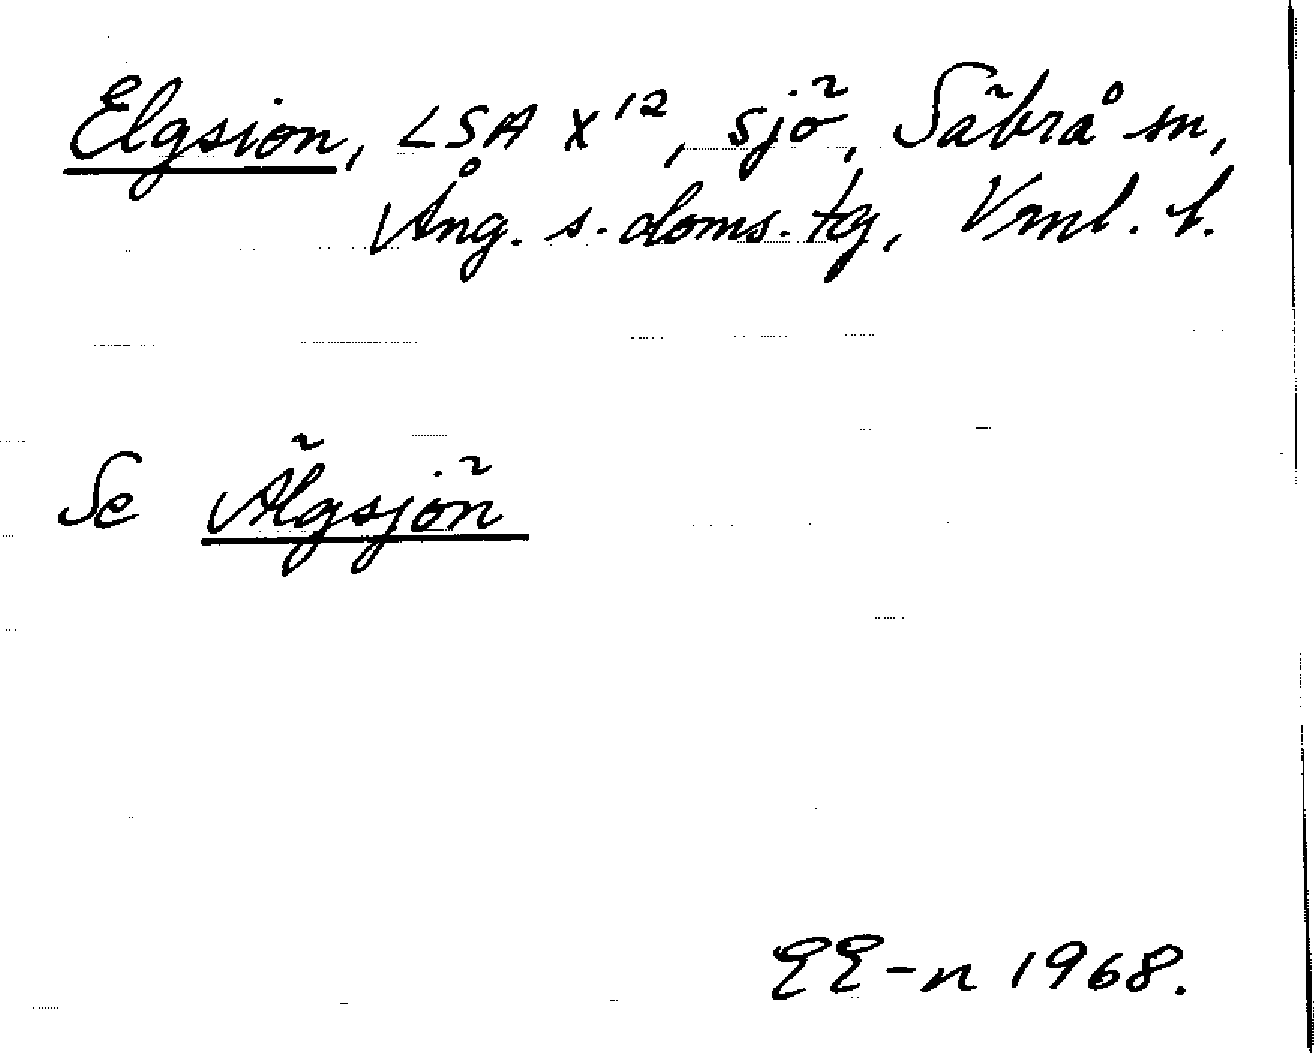 Elgsion, LSA X¹², sjö, Säbrå sn,
Ång. s. doms. tg, Vml. l.
Se Älgsjön
EE-n 1968.